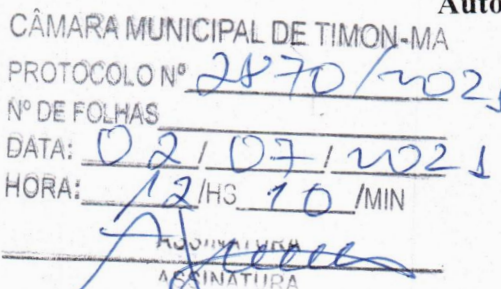 Auto
CÂMARA MUNICIPAL DE TIMON-MA
PROTOCOLO Nº 2870/2021
Nº DE FOLHAS
DATA: 02/07/2021
HORA: 12/HS 10/MIN
ASSINATURA
ASSINATURA